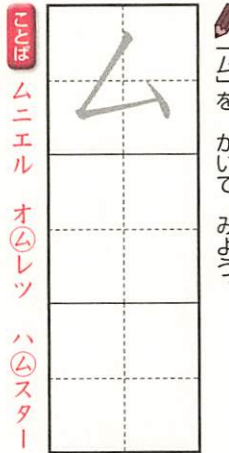 「ム」を かいて みよう。
ム
ことば
ムニエル オムレツ ハムスター